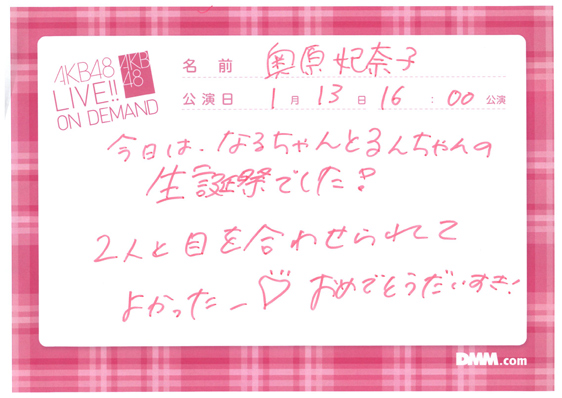 AKB48
LIVE!!
ON DEMAND
AKB
48
名 前 奥原妃奈子
公演日 1月13日16:00公演
今日は、なるちゃんとるんちゃんの
生誕祭でした!
2人と目を合わせられて
よかったー♡ おめでとうだいすき!
DMM.com